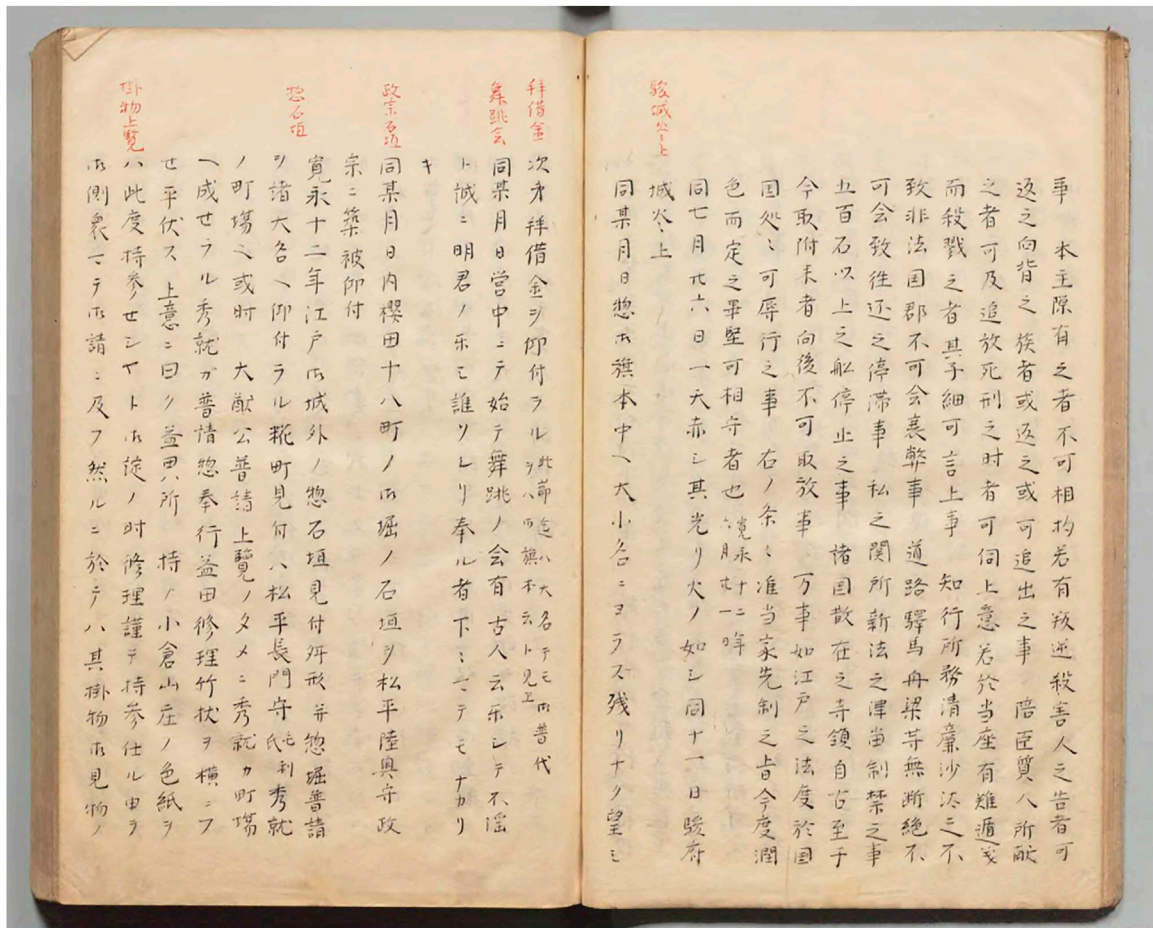 事 本主障有之者不可相拘若有叛逆殺害人之告者可
返之向背之族者或返之或可追出之事 陪臣質人所献
之者可及追放死刑之时者可伺上意若於当座有難遁義
而殺戮之者其子細可言上事 知行所務清廉沙汰之不
致非法国郡不可令衰弊事 道路驛馬舟梁等無断絶不
可令致往还之停滞事 私之関所新法之津留制禁之事
五百石以上之舩停止之事 諸国散在之寺領自古至于
今取附来者向後不可取放事 万事如江戸之法度於国
国処々可遵行之事 右ノ条々准当家先制之旨今度潤
色而定之畢堅可相守者也 寛永十二年六月廿一日
同七月廿六日一天赤シ其光リ火ノ如シ同十一日駿府
駿城炎上
城炎上
同某月日惣御旗本中ヘ大小名ニヨラス残リナク望ミ
拜借金
次才拜借金ヲ仰付ラル 此節迄ハ大名テモ御普代ヲハ御旗本云ト見上
舞跳会
同某月日営中ニテ始テ舞跳ノ会有古人云乐シテ不淫
ト誠ニ明君ノ乐ミ誰ソシリ奉ル者下ミ迠テモナカリ
キ
政宗石垣
同某月日内櫻田十八町ノ御堀ノ石垣ヲ松平陸奥守政
宗ニ築被仰付
惣石垣
寛永十二年江戸御城外ノ惣石垣見付舛形并惣堀普請
ヲ諸大名ヘ仰付ラル糀町見付ハ松平長門守毛利氏秀就
ノ町場也或时 大猷公普請上覽ノタメニ秀就カ町場
ヘ成セラル秀就カ普請惣奉行益田修理竹杖ヲ横ニフ
セ平伏ス 上意ニ曰ク益田所持ノ小倉山庄ノ色紙ヲ
掛物上覧
ハ此度持参セシヤト御掟ノ时修理謹テ持参仕ル由ヲ
御側衆マテ御請ニ及フ然ルニ於テハ其掛物御見物ノ